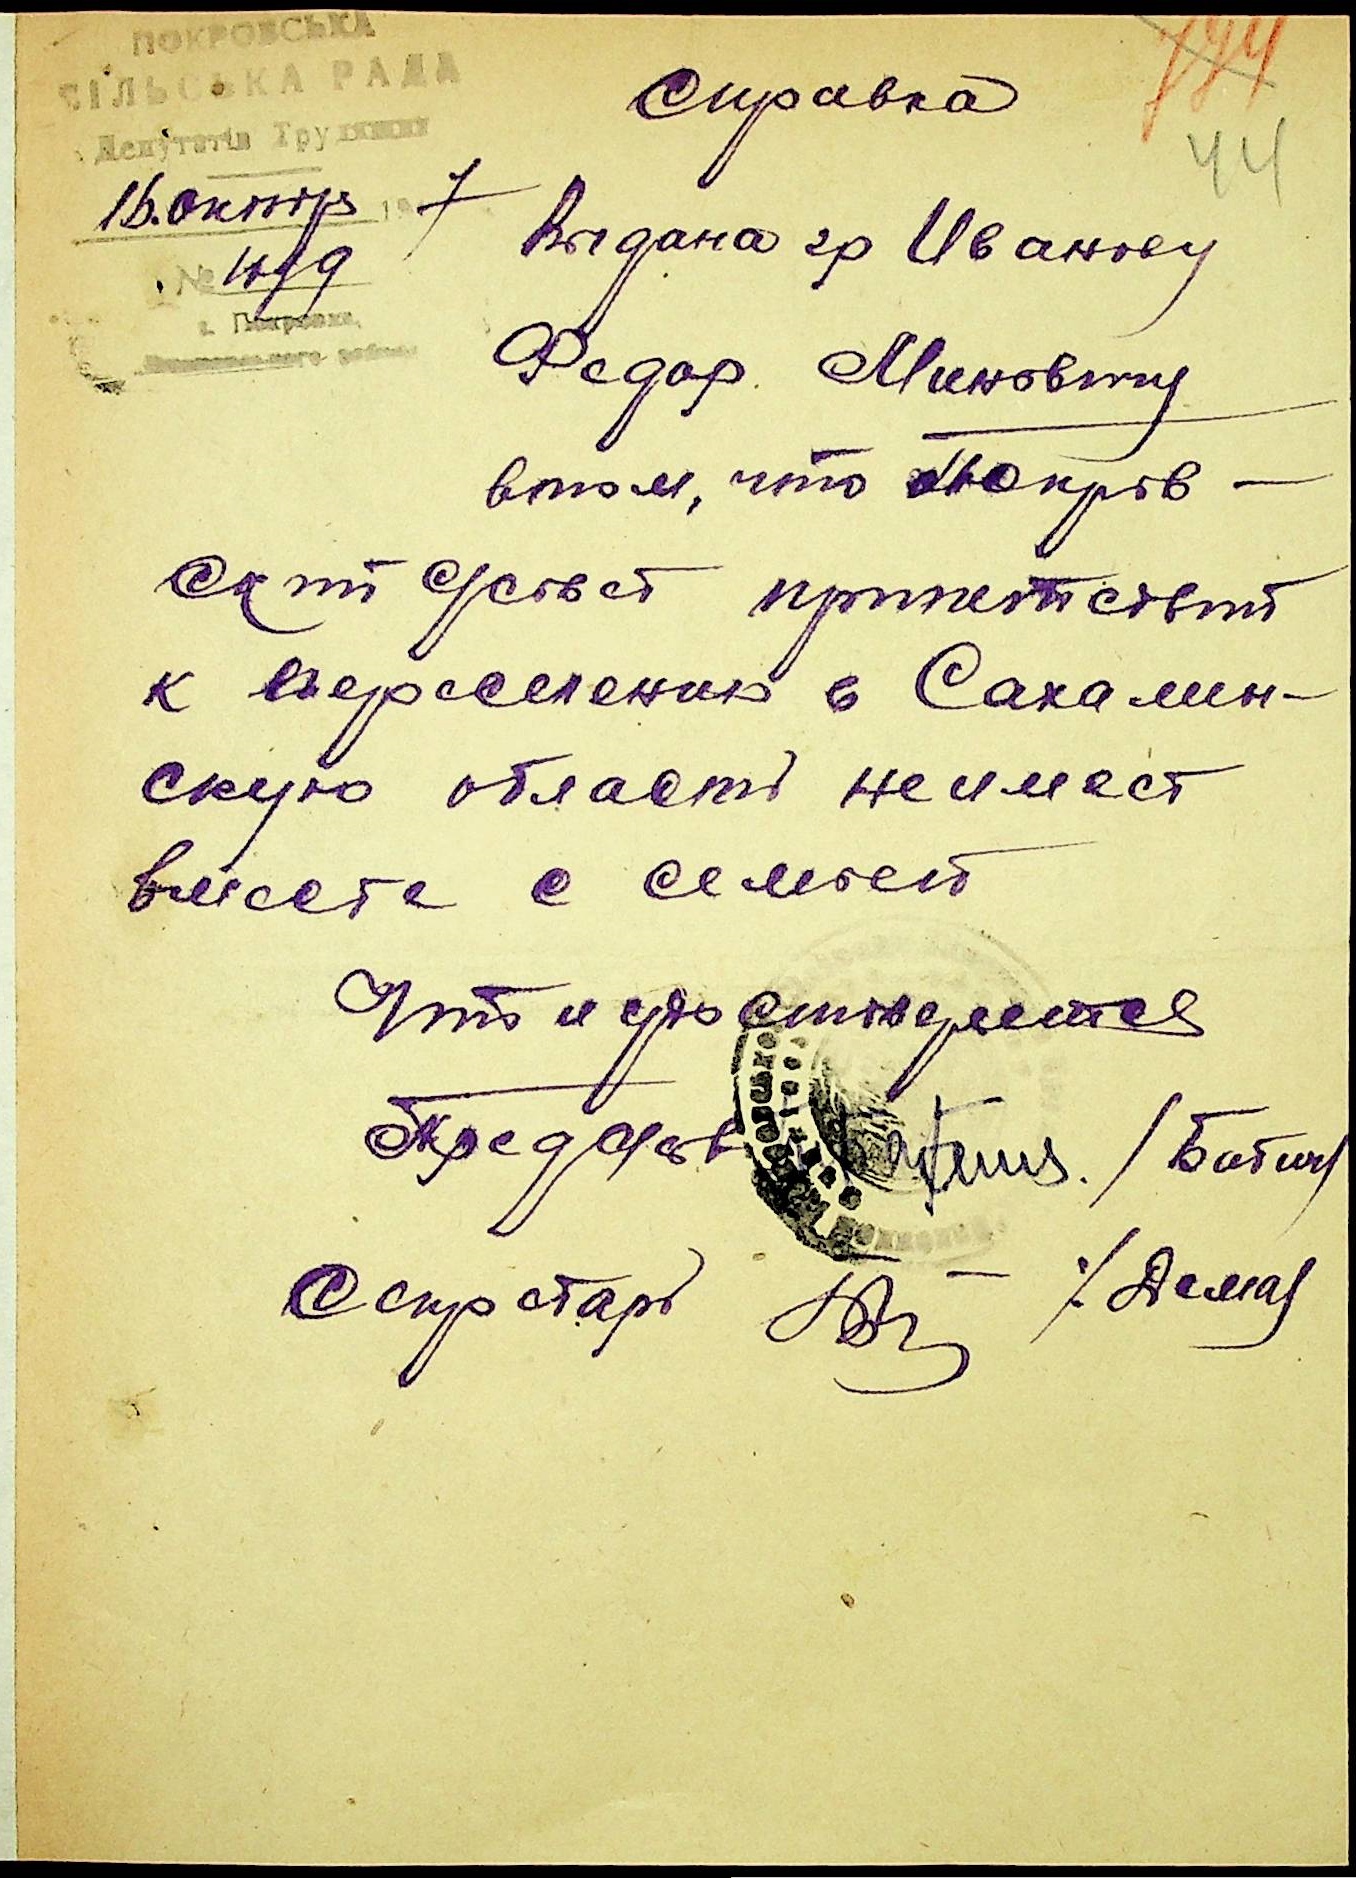 ПОКРОВСЬКА
СІЛЬСЬКА РАДА
Депутатів Трудящих
44
16. октябр 19 7
№
с. Покровка,
района
Справка
Выдана гр Иванову
Федор. Миновичу
втом, что Покров-
ский с/совет припятствий
к переселению в Сахалин-
скую область неимеет
вместе с семьей
Что и удостоверяется
Пред с/сов /Батич
Секретарь